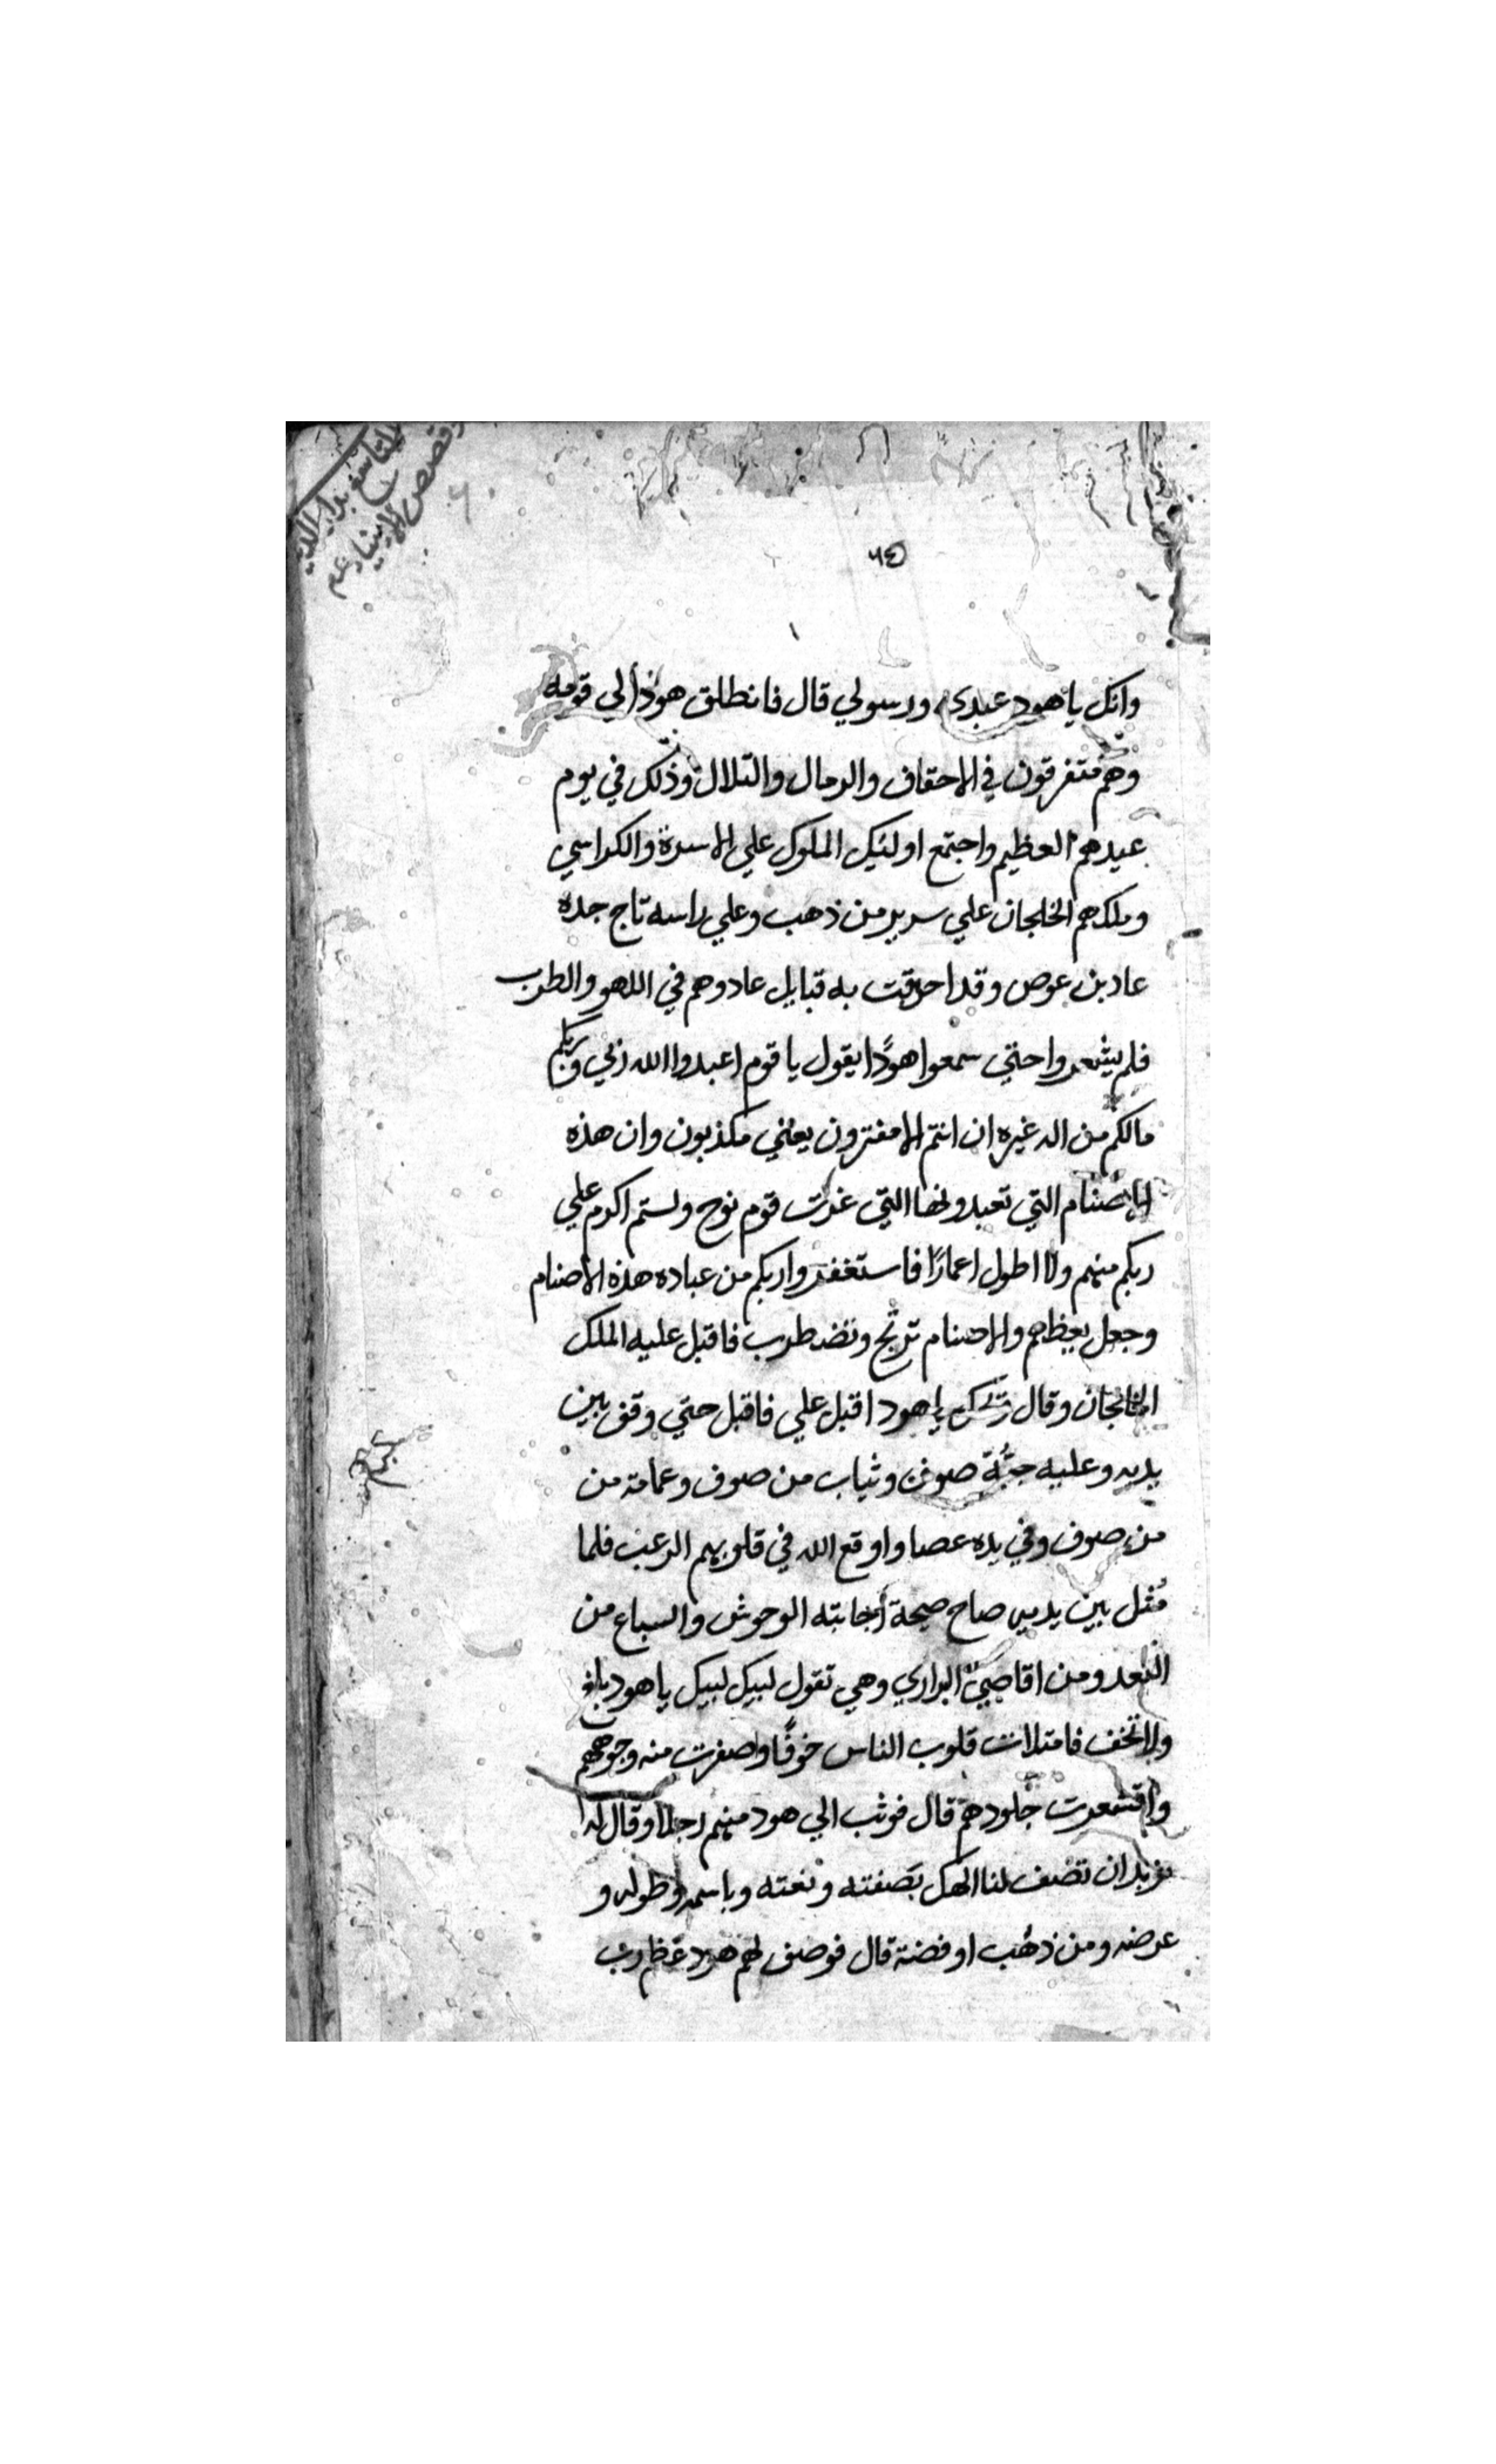 قصص الانبياء عم
٦٤
وانك يا هود عبدى ورسولي قال فانطلق هود الي قومه
وهم متفرقون في الاحقاف والرمال والتلال وذلك في يوم
عيدهم العظيم واجتمع اوليك الملوك علي الاسرة والكراسي
وملكهم الخلجان علي سرير من ذهب وعلي راسه تاج جده
عاد بن عوص وقد احدقت به قبايل عاد وهم في اللهو والطرب
فلم يشعروا حتي سمعوا هودًا يقول يا قوم اعبدوا الله ربي وربكم
مالكم من اله غيره ان انتم الا مفترون يعني مكذبون وان هذه
الاصنام التي تعبدونها التي غرت قوم نوح ولستم اكرم علي
ربكم منهم ولا اطول اعمارًا فاستغفروا ربكم من عباده هذه الاصنام
وجعل يعظهم والاصنام ترتج وتضطرب فاقبل عليه الملك
الخلجان وقال يا هود اقبل علي فاقبل حتي وقف بين
يديه وعليه جبُّة صوف وثياب من صوف وعمامة من
من صوف وفي يده عصا واوقع الله في قلوبهم الرعب فلما
مُثل بين يديه صاح صيحة أجابته الوحوش والسباع من
البعد ومن اقاصي البراري وهي تقول لبيك لبيك يا هود بلغ
ولا تخف فامتلات قلوب الناس خوفًا واصفرت منه وجوههم
واقشعرت جلودهم قال فوثب الي هود منهم رجلا وقال له
نريد ان تصف لنا الهك بصفته ونعته وباسمه وطوله و
عرضه ومن ذهب او فضة قال فوصف لهم هود عظم رب